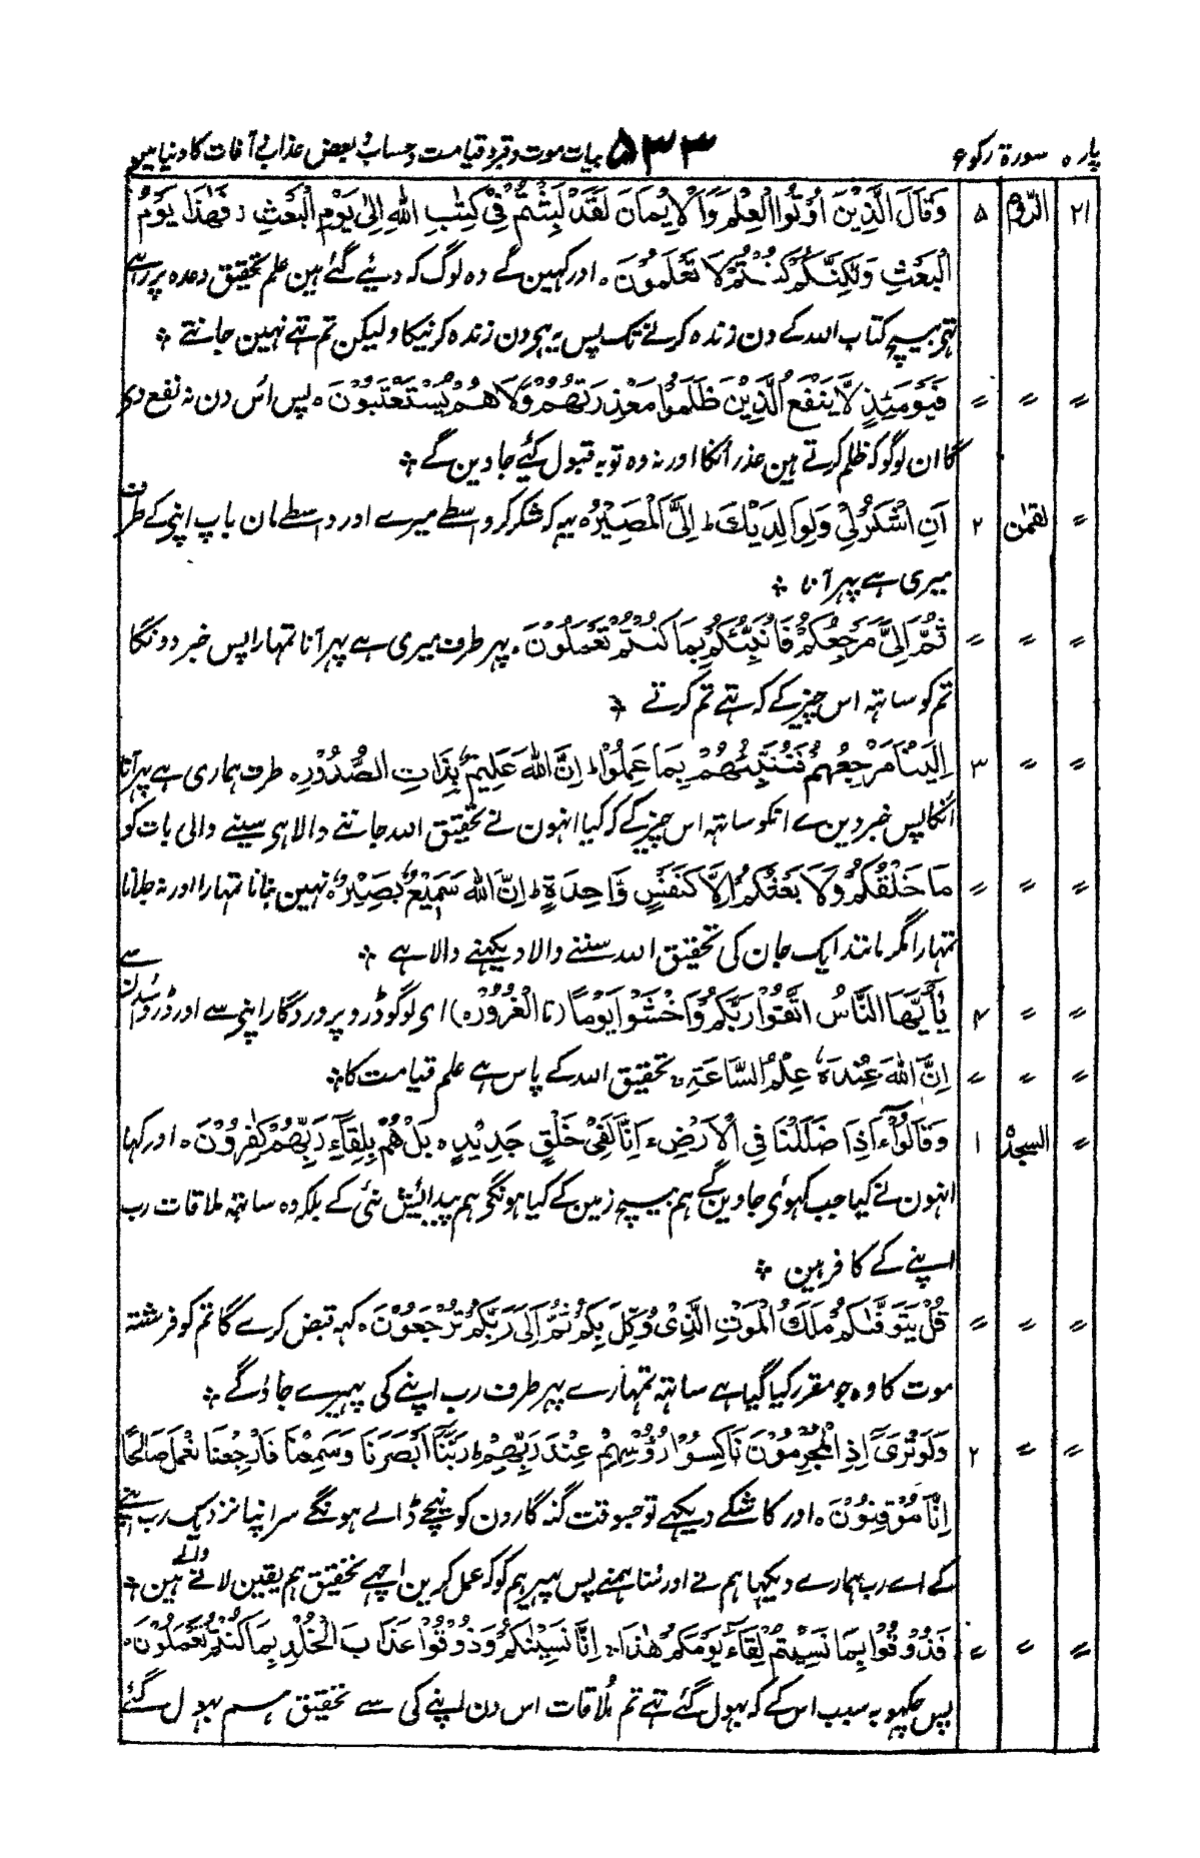 پارہ سورۃ رکوع ۵۳۳ بیات موت و قبر و قیامت و حساب و بعض عذاب آفات کا دنیا مین
۲۱ الرّوم ۵ وَقَالَ الَّذِيْنَ اُوْتُوا الْعِلْمَ وَالْاِيْمَانَ لَقَدْ لَبِثْتُمْ فِيْ كِتٰبِ اللّٰهِ اِلٰى يَوْمِ الْبَعْثِ ز فَهٰذَا يَوْمُ
الْبَعْثِ وَلٰكِنَّكُمْ كُنْتُمْ لَا تَعْلَمُوْنَ ہ اور کہین گے وہ لوگ کہ دیئے گئے ہین علم تحقیق وعدہ پر رہے
تہے بیچ کتاب اللہ کے دن زندہ کرنے تک پس یہ ہی دن زندہ کرنیکا ولیکن تم تہے نہین جانتے ۞
〃 〃 〃 فَيَوْمَئِذٍ لَّا يَنْفَعُ الَّذِيْنَ ظَلَمُوْا مَعْذِرَتُهُمْ وَلَا هُمْ يُسْتَعْتَبُوْنَ ہ پس اُس دن نہ نفع دی
گا ان لوگو کہ ظلم کرتے ہین عذر اُنکا اور نہ وہ توبہ قبول کئے جاوین گے ۞
〃 لقمٰن ۲ اَنِ اشْكُرْ لِيْ وَلِوَالِدَيْكَ ط اِلَيَّ الْمَصِيْرُ ہ یہہ کہ شکر کر واسطے میرے اور واسطے مان باپ اپنی کے طرف
میری ہے پہر آنا ۞
〃 〃 〃 ثُمَّ اِلَيَّ مَرْجِعُكُمْ فَاُنَبِّئُكُمْ بِمَا كُنْتُمْ تَعْمَلُوْنَ ہ پہر طرف میری ہے پہر آنا تمہارا پس خبر دونگا
تم کو ساتہہ اس چیز کے کہ تہے تم کرتے ۞
〃 〃 ۳ اِلَيْنَا مَرْجِعُهُمْ فَنُنَبِّئُهُمْ بِمَا عَمِلُوْا ط اِنَّ اللّٰهَ عَلِيْمٌ بِذَاتِ الصُّدُوْرِ ہ طرف ہماری ہے پہر آنا
اُنکا پس خبر دین ے انکو ساتہہ اس چیز کے کہ کیا انہون نے تحقیق اللہ جاننے والا ہی سینے والی بات کو
〃 〃 〃 مَا خَلْقُكُمْ وَلَا بَعْثُكُمْ اِلَّا كَنَفْسٍ وَّاحِدَةٍ ط اِنَّ اللّٰهَ سَمِيْعٌ بَصِيْرٌ ہ نہین بنانا تمہارا اور نہ جلانا
تمہارا مگر مانند ایک جان کی تحقیق اللہ سننے والا دیکہنے والا ہے ۞
〃 〃 ۴ يٰاَيُّهَا النَّاسُ اتَّقُوْا رَبَّكُمْ وَاخْشَوْا يَوْمًا (تا الْغُرُوْرُ ہ) ای لوگو ڈرو پروردگار اپنی سے اور ڈرو اُسدن سے
〃 〃 〃 اِنَّ اللّٰهَ عِنْدَهٗ عِلْمُ السَّاعَةِ ہ تحقیق اللہ کے پاس ہے علم قیامت کا ۞
〃 السجدۃ ۱ وَقَالُوْٓا ءَاِذَا ضَلَلْنَا فِي الْاَرْضِ ءَاِنَّا لَفِيْ خَلْقٍ جَدِيْدٍ ہ بَلْ هُمْ بِلِقَآءِ رَبِّهِمْ كٰفِرُوْنَ ہ اور کہا
انہون نے کیا جب کہوئی جاوین گے ہم بیچ زمین کے کیا ہونگی ہم پیدائیش نئی کے بلکہ وہ ساتہہ ملاقات رب
اپنے کے کافر ہین ۞
〃 〃 〃 قُلْ يَتَوَفّٰىكُمْ مَلَكُ الْمَوْتِ الَّذِيْ وُكِّلَ بِكُمْ ثُمَّ اِلٰى رَبِّكُمْ تُرْجَعُوْنَ ہ کہہ قبض کرے گا تم کو فرشتہ
موت کا وہ جو مقرر کیا گیا ہے ساتہہ تمہارے پہر طرف رب اپنے کی پہیرے جاؤ گے ۞
〃 〃 ۲ وَلَوْ تَرٰىٓ اِذِ الْمُجْرِمُوْنَ نَاكِسُوْا رُؤُوْسِهِمْ عِنْدَ رَبِّهِمْ ط رَبَّنَآ اَبْصَرْنَا وَسَمِعْنَا فَارْجِعْنَا نَعْمَلْ صَالِحًا
اِنَّا مُوْقِنُوْنَ ہ اور کاشکے دیکہے تو جسوقت گنہگارون کو نیچے ڈالے ہونگے سر اپنا نزدیک رب اپنے
کے اے رب ہمارے دیکہا ہم نے اور سُنا ہمنے پس پہیر ہم کو کہ عمل کرین اچہے تحقیق ہم یقین لانے والے ہین ۞
〃 〃 〃 فَذُوْقُوْا بِمَا نَسِيْتُمْ لِقَآءَ يَوْمِكُمْ هٰذَا ج اِنَّا نَسِيْنٰكُمْ وَذُوْقُوْا عَذَابَ الْخُلْدِ بِمَا كُنْتُمْ تَعْمَلُوْنَ ہ
پس چکہو بہ سبب اس کے کہ بہول گئے تہے تم مُلاقات اس دن اپنے کی سے تحقیق ہم بہول گئے